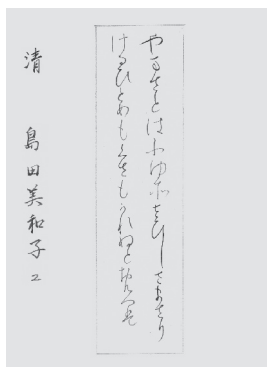 やまさとは冬ぞさびしさまさり
けるひとめもくさもかれぬとおもへば
清　島田美和子 ュ